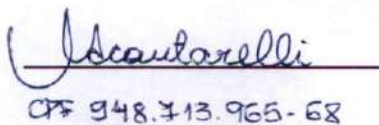 Vscantarelli
CPF 948.713.965-68